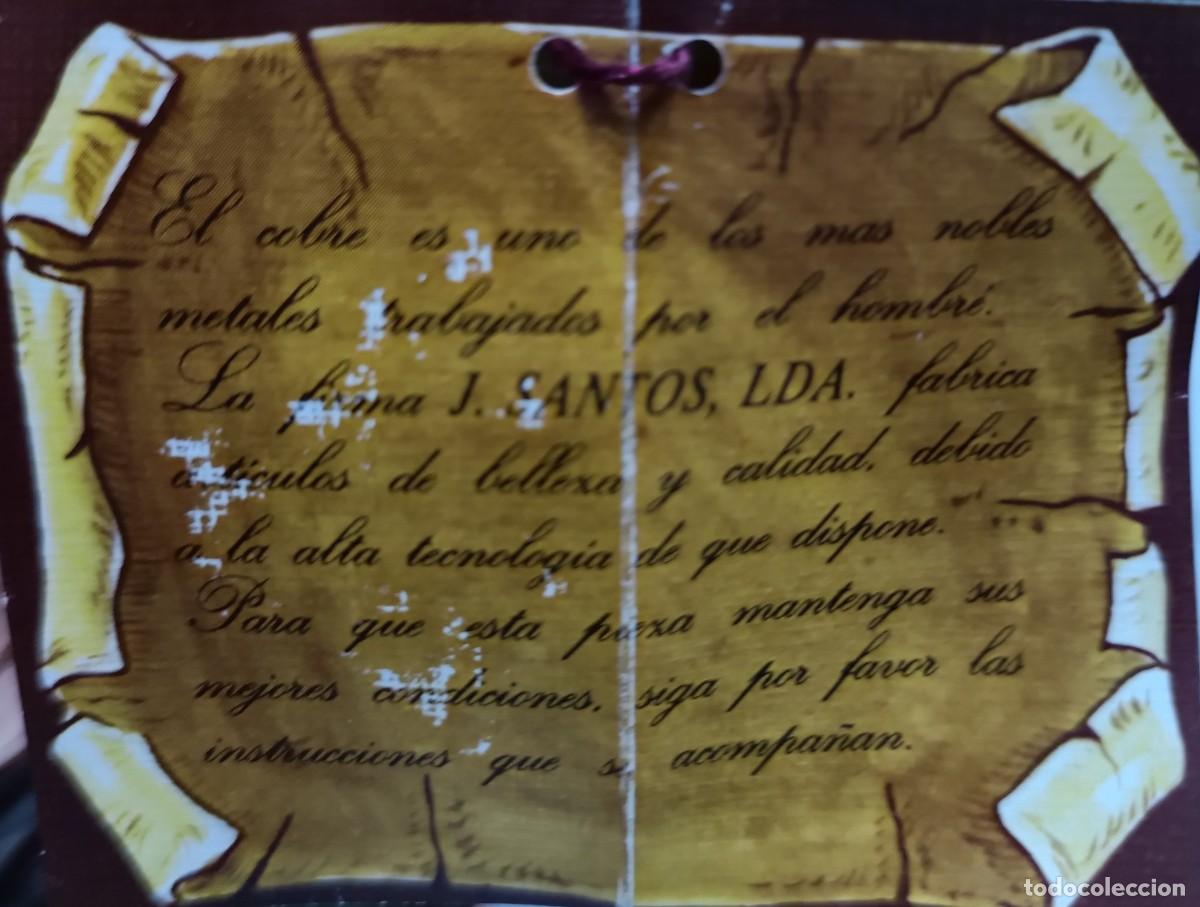 El cobre es uno de los mas nobles
metales trabajados por el hombré.
La firma J. SANTOS, LDA. fabrica
artículos de belleza y calidad, debido
a la alta tecnología de que dispone.
Para que esta pieza mantenga sus
mejores condiciones, siga por favor las
instrucciones que se acompañan.
todocoleccion